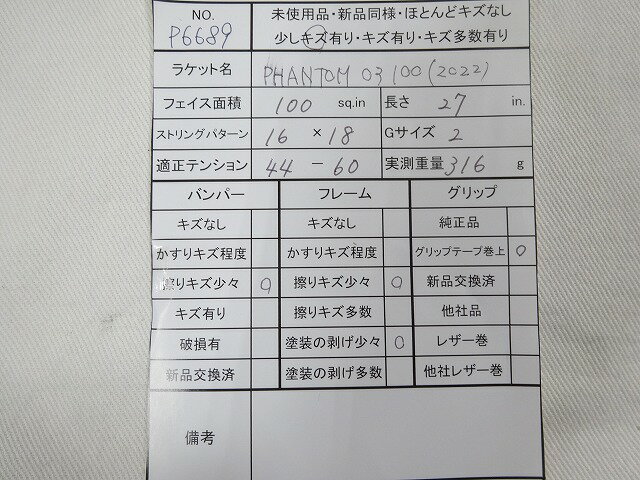 NO. 未使用品・新品同様・ほとんどキズなし
P6689 少しキズ有り・キズ有り・キズ多数有り
ラケット名 PHANTOM 03 100 (2022)
フェイス面積 100 sq.in 長さ 27 in.
ストリングパターン 16 × 18 Gサイズ 2
適正テンション 44 - 60 実測重量 316 g
バンパー フレーム グリップ
キズなし キズなし 純正品
かすりキズ程度 かすりキズ程度 グリップテープ巻上 ○
擦りキズ少々 ○ 擦りキズ少々 ○ 新品交換済
キズ有り 擦りキズ多数 他社品
破損有 塗装の剥げ少々 ○ レザー巻
新品交換済 塗装の剥げ多数 他社レザー巻
備考